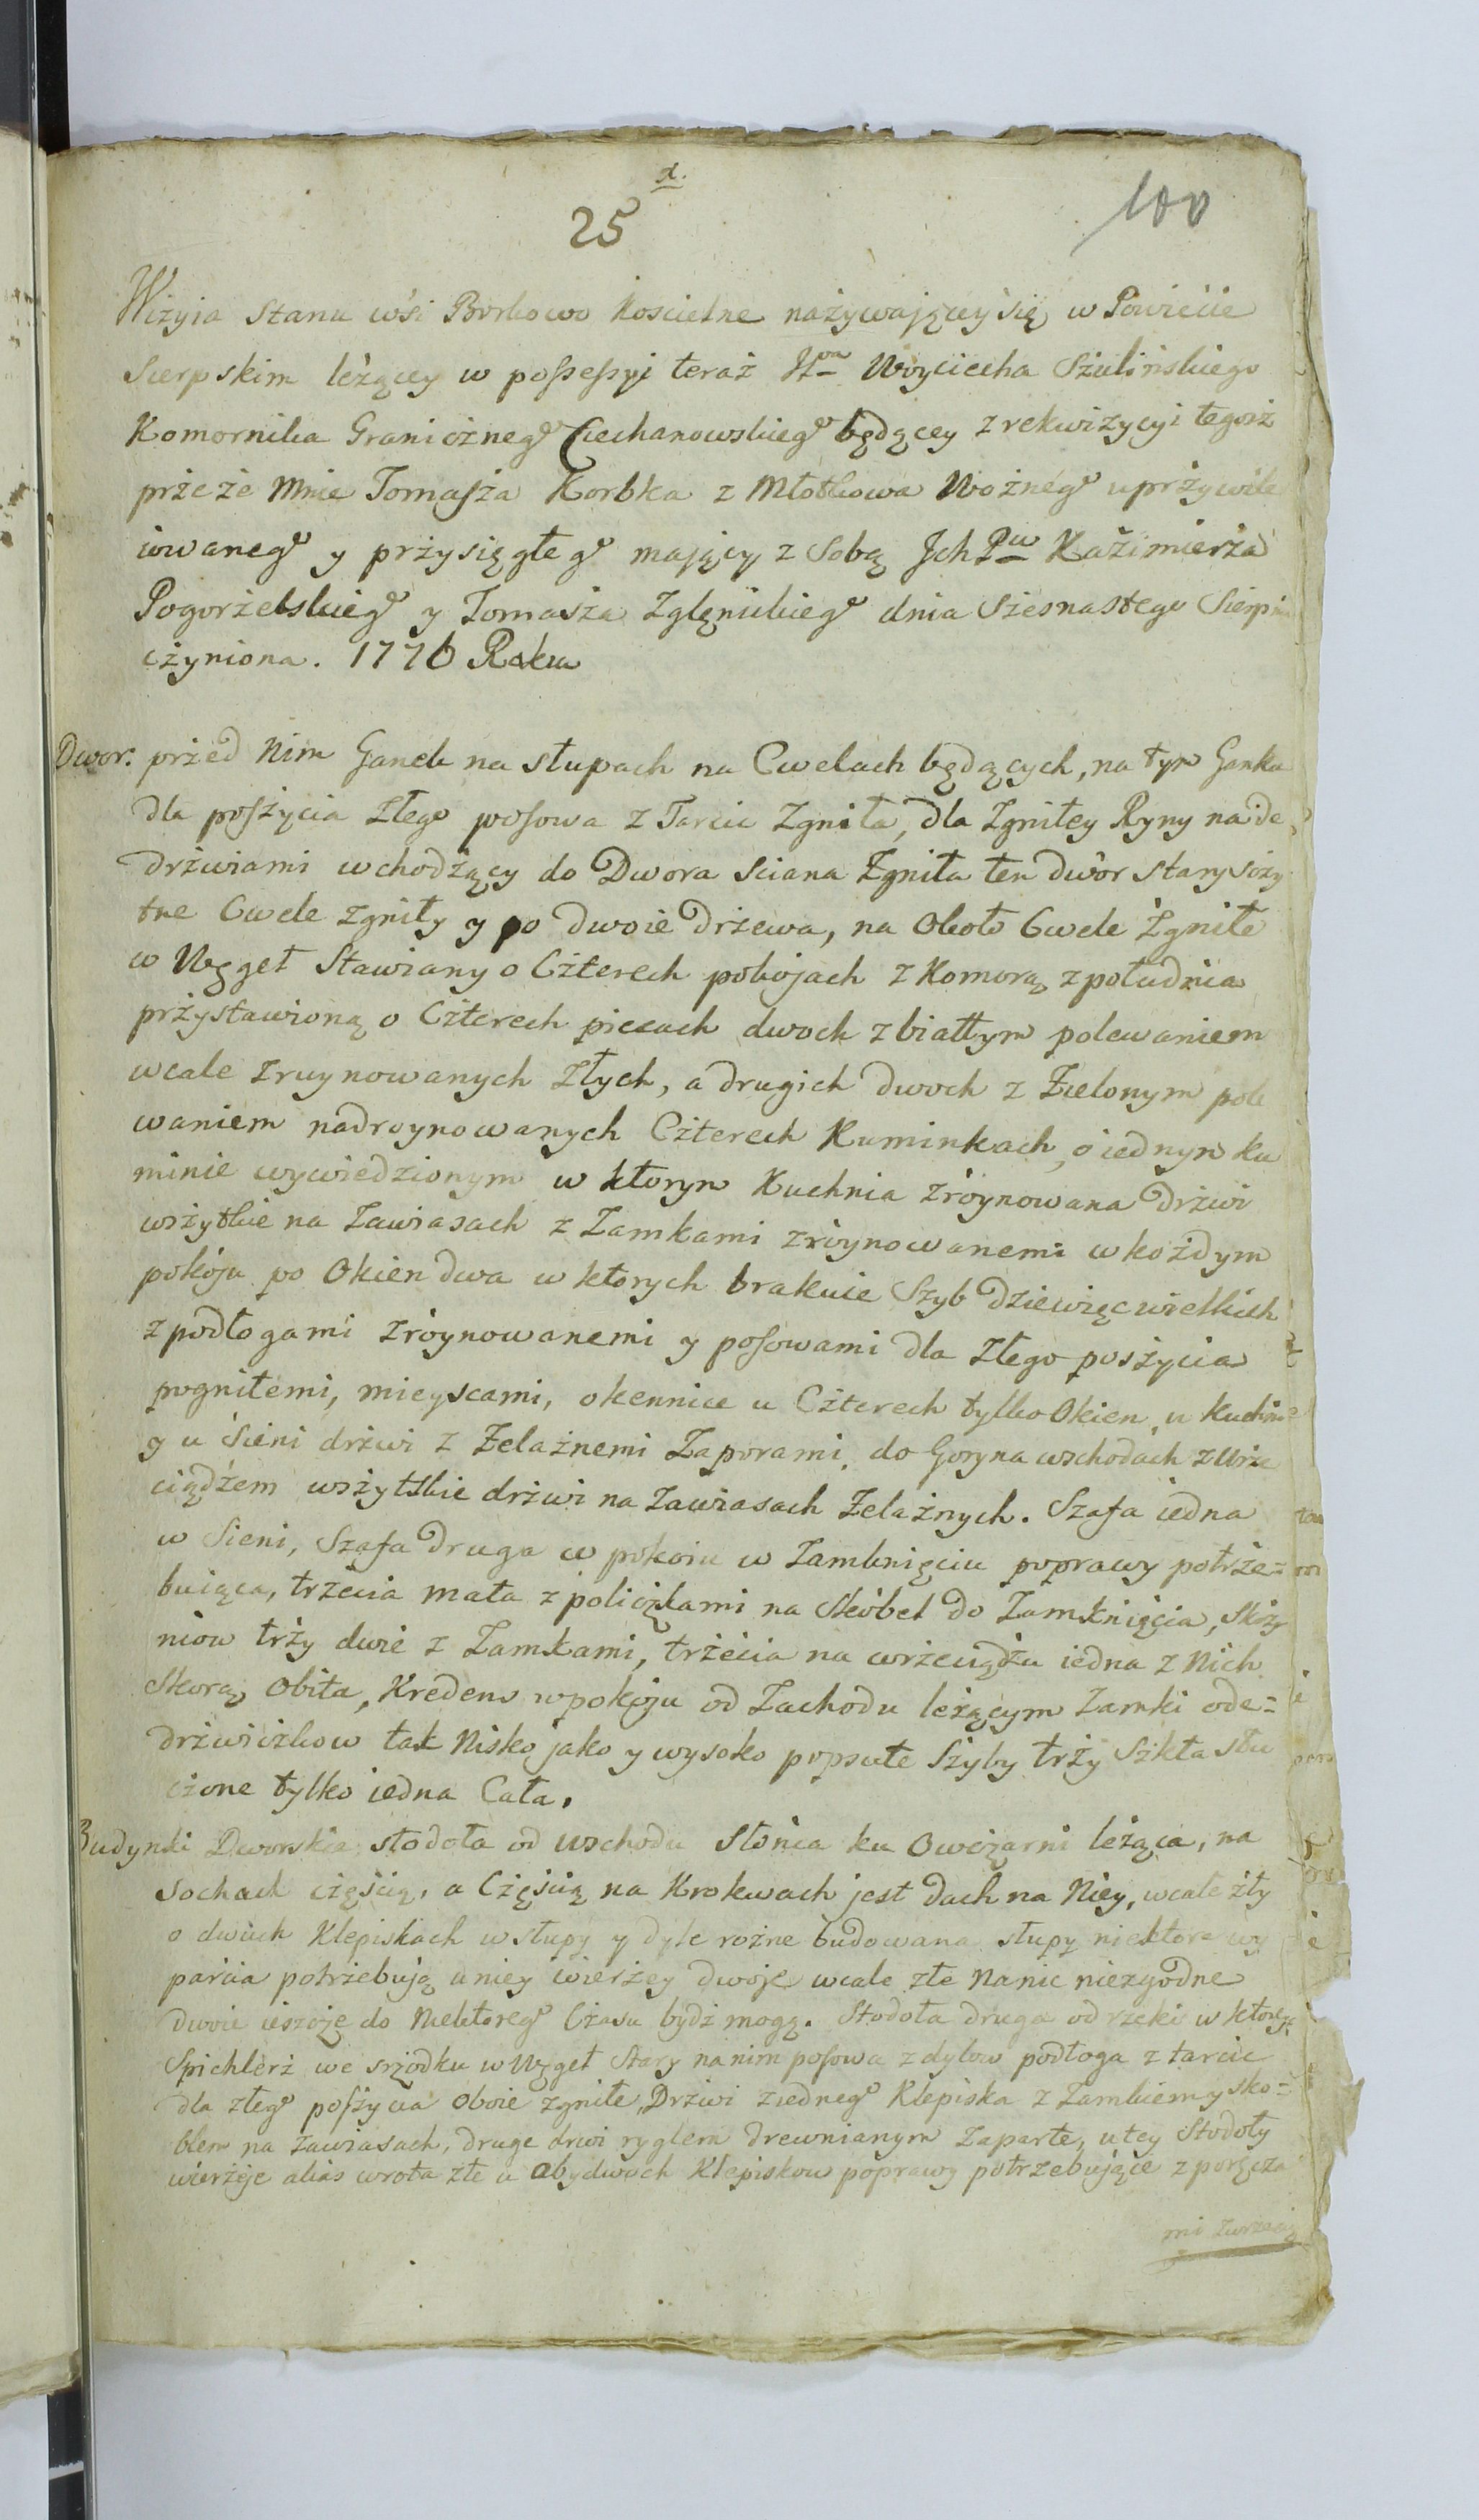 x.
25
100
Wizyia Stanu wsi Borkowo Koscielne nażywaiącey się w Powiecie
Sierpskim leżącey w possessyi teraż Woyciecha Sżulińskiego
Komornika Granicżneg° Ciechanowskieg° będącey z rekwizycyi tegoż
przeże Mnie Tomasża Korbka z Młotkowa Woźnég° uprżywile
iowaneg° y przysięgłeg° maiący z Sobą Ich Pw Każimierża
Pogorżelskieg° y Tomasża Zglęnickieg° dnia Sżesnastego Sierpnia
cżyniona. 1776 Roku
Dwor: przed Nim Ganek na słupach na Cwelach będących, na tym Ganku
dla posżycia złego posowa z Tarcic Zgniła, dla Zgniłey Ryny nade
drżwiami wchodżący do Dwora Sciana Zgniła ten dwór Stary
Cwele zgniły y po dwoie drżewa, na Około Cwele Zgniłe
w Węgeł Stawiany o Cżterech pokojach z Komorą z południa
przystawioną o Cżterech piecach dwoch z białtym polewaniem
wcale zruynowanych złych, a drugich dwoch z Zielonym pole
waniem nadroynowanych Cżterech Kuminkach, o iednym ku
minie wywiedzionym w ktorym Kuchnia zróynowana drżwi
wsżytkie na Zawiasach z Zamkami zróynowanemi w każdym
pokóju po Okien dwa w ktorych brakuie Szyb dziewięc wielkich
z podłogami zróynowanemi y posowami dla złego posżycia
pogniłemi, mieyscami, okennice u Cżterech tylko Okien, u kuchni
y u Sieni drżwi z Żelażnemi Zaporami, do Gory na wschodach z Wrże
ciądżem wsżytskie drżwi na Zawiasach Żelażnych. Szafa iedna
w Sieni, Szafa druga w pokoiu w Zamknięciu poprawy potrże=
buiąca, trżecia mała z policżkami na Skóbel do Zamknięcia, Skrzy
niow trży dwie z Zamkami, trżecia na wrżeciądżu iedna z Nich
Skorą Obita, Kredens w pokoju od Zachodu leżącym Zamki ode=
drżwicżkow tak Nisko jako y wysoko popsute Sżyby trży Szkła stłu
cżone tylko iedna Cała.
Budynki Dworskie stodoła od wschodu Słońca ku Owcżarni leżąca, na
sochach cżęścią, a Cżęścią na Krokwach jest dach na Niey, wcale zły
o dwuch Klepiskach w słupy y dyle rożne budowana słupy niektore wy
parcia potrżebują u niey wierżey dwoje wcale złe na nic niezgodne
dwoie iescże do Niektoreg° Cżasu bydż mogą. Stodoła druga od rzeki w ktorey
Spichlerż we srżodku w Węgeł Stary na nim posowa z dylow podłoga z tarcic
dla złeg° posżycia oboie zgniłe, Drżwi z iedneg° Klepiska z Zamkiem y sko=
blem na Zawiasach, druge drwi ryglem drewnianym Zaparte, u tey Stodoły
wierżeje alias wrota złe u Obydwoch Klepiskow poprawy potrzebuiące z poręcza
mi